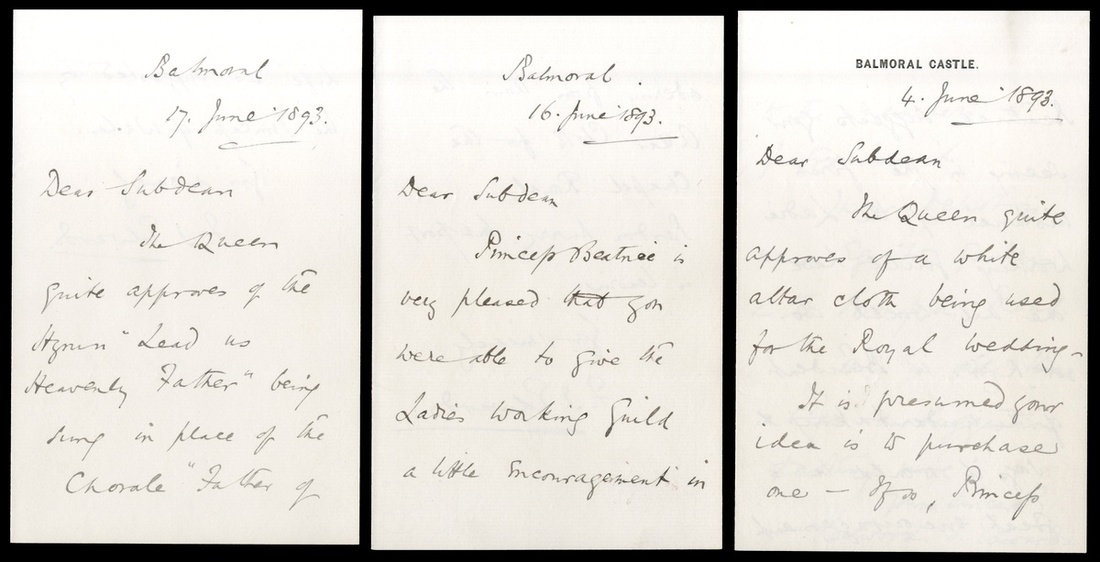 Balmoral
17. June 1893.
Dear Subdean
The Queen
quite approves of the
Hymn "Lead us
Heavenly Father" being
sung in place of the
Chorale "Father of
Balmoral
16. June 1893.
Dear Subdean
Princess Beatrice is
very pleased that you
were able to give the
Ladies working Guild
a little Encouragement in
BALMORAL CASTLE.
4. June 1893.
Dear Subdean
The Queen quite
approves of a white
altar cloth being used
for the Royal Wedding -
It is presumed your
idea is to purchase
one – If so, Princess